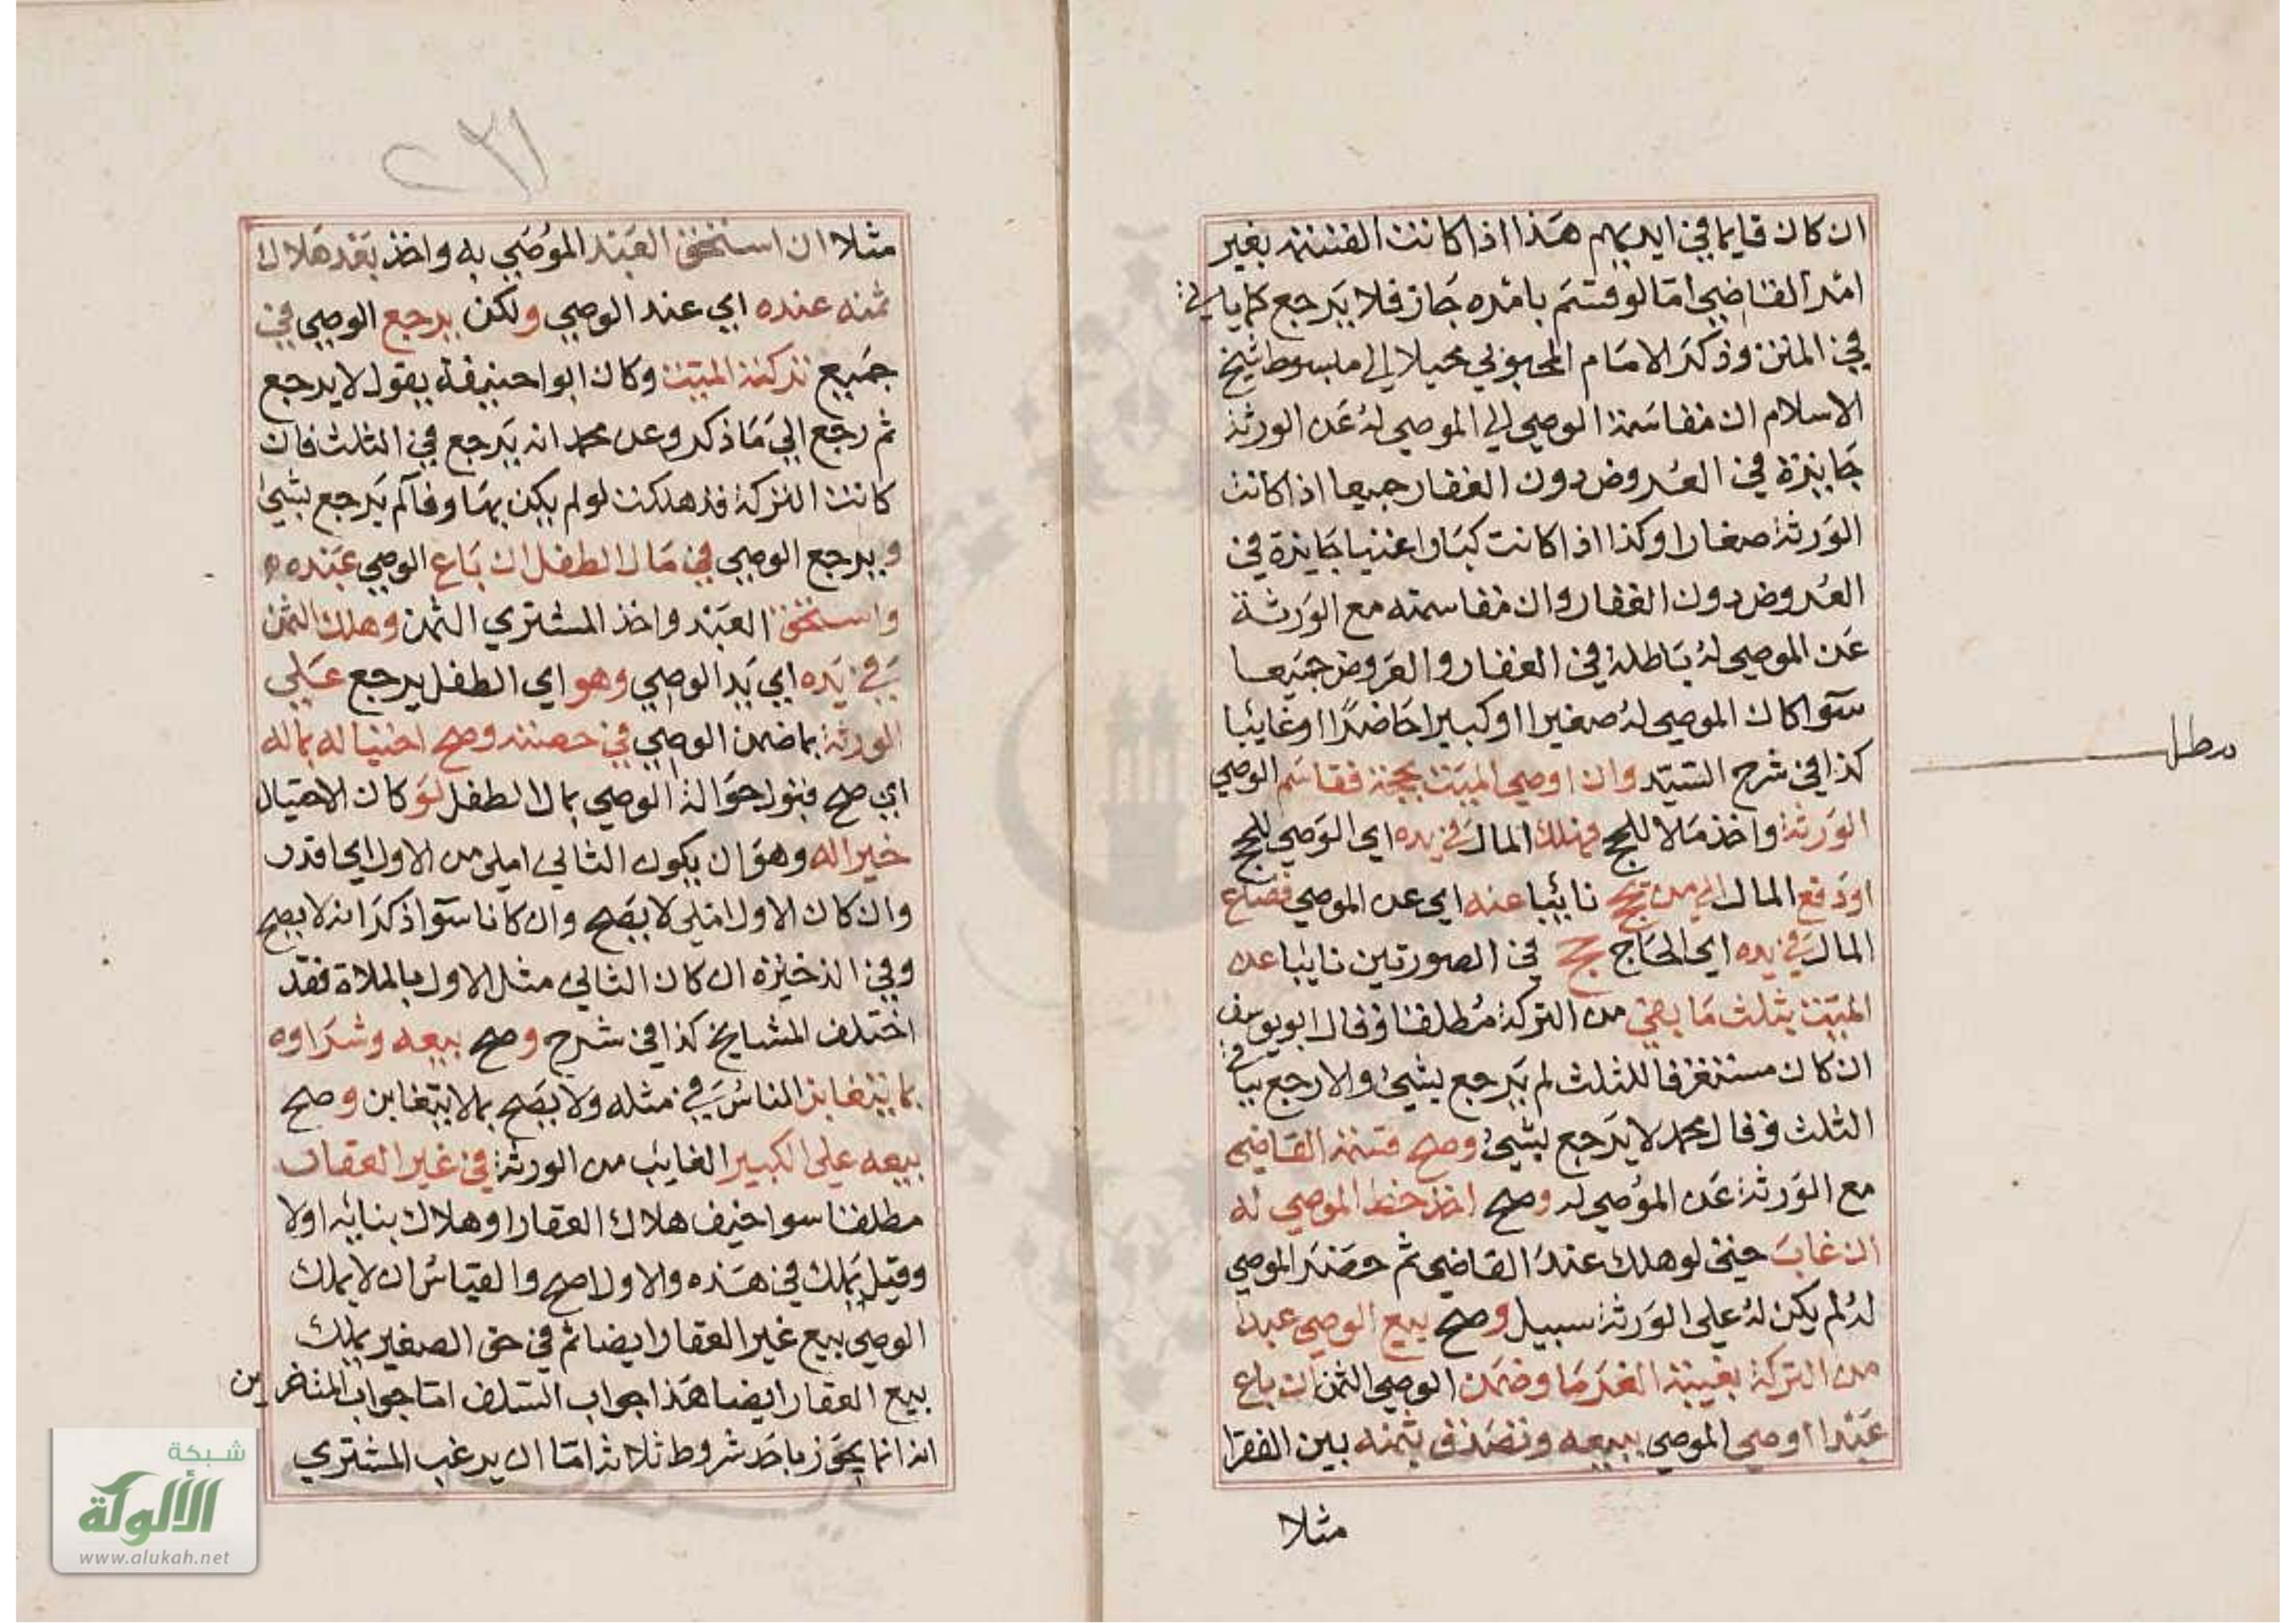 ان كان قايما في ايديهم هذا اذا كانت القسمة بغير
امر القاضي اما لو قسم بامره جاز فلا يرجع كما ياتي
في المتن وذكر الامام المحبوبي محيلا الى مبسوط شيخ
الاسلام ان مقاسمة الوصي الي الموصي له عن الورثة
جايزة في العروض دون العقار جميعا اذا كانت
الورثة صغارا وكذا اذا كانت كبارا غنيا جايزة في
العروض دون العقار وان مقاسمته مع الورثة
عن الموصي له باطلة في العقار والعروض جميعا
سوا كان الموصي له صغيرا او كبيرا حاضرا او غايبا
كذا في شرح السيد وان اوصي الميت بحجة فقاسم الوصي
الورثة واخذ مالا للحج فهلك المال في يده اي الوصي للحج
او دفع المال الي من يحج نائبا عنه اي عن الموصي فضاع
المال في يده اي الحاج حج في الصورتين نايبا عن
الميت بثلث ما بقي من التركة مطلقا وقال ابو يوسف
ان كان مستغرقا للثلث لم يرجع بشي والا رجع بباقي
الثلث وقال محمد لا يرجع بشي وصح قسمة القاضي
مع الورثة عن الموصي له وصح اخذ حظ الموصي له
ان غاب حتى لو هلك عند القاضي ثم حضر الموصي
له لم يكن له على الورثة سبيل وصح بيع الوصي عبدا
من التركة بغيبة الغرما وضمن الوصي الثمن ان باع
عبدا اوصي الموصي ببيعه وتصدق بثمنه بين الفقرا
مثلا
مطلب
٢٣١
مثلا ان استحق العبد الموصي به واخذ بعد هلاك
ثمنه عنده اي عند الوصي ولكن يرجع الوصي في
جميع تركة الميت وكان ابو حنيفة يقول لا يرجع
ثم رجع الي ما ذكر وعن محمد انه يرجع في الثلث فان
كانت التركة قد هلكت لو لم يكن بها وفا لم يرجع بشي
ويرجع الوصي في مال الطفل ان باع الوصي عبده
واستحق العبد واخذ المشتري الثمن وهلك الثمن
في يده اي يد الوصي وهو اي الطفل يرجع علي
الورثة بما ضمن الوصي في حصته وصح احتياله بماله
اي صح قبول حوالة الوصي بمال الطفل لو كان الاحتيال
خيرا له وهو ان يكون الثاني املي من الاول اي اقدر
وان كان الاول املي لا يصح وان كانا سوا ذكر انه لا يصح
وفي الذخيرة ان كان الثاني مثل الاول بالملاة فقد
اختلف المشايخ كذا في شرح وصح بيعه وشراوه
بما يتغابن الناس في مثله ولا يصح بما لا يتغابن وصح
بيعه علي الكبير الغايب من الورثة في غير العقار
مطلقا سوا خيف هلاك العقار او هلاك بنائه اولا
وقيل يملك في هذه والاول اصح والقياس ان لا يملك
الوصي بيع غير العقار ايضا ثم في حق الصغير يملك
بيع العقار ايضا هذا جواب السلف اما جواب المتاخرين
انه انما يجوز باحد شروط ثلاثة اما ان يرغب المشتري
شبكة
الألوكة
www.alukah.net